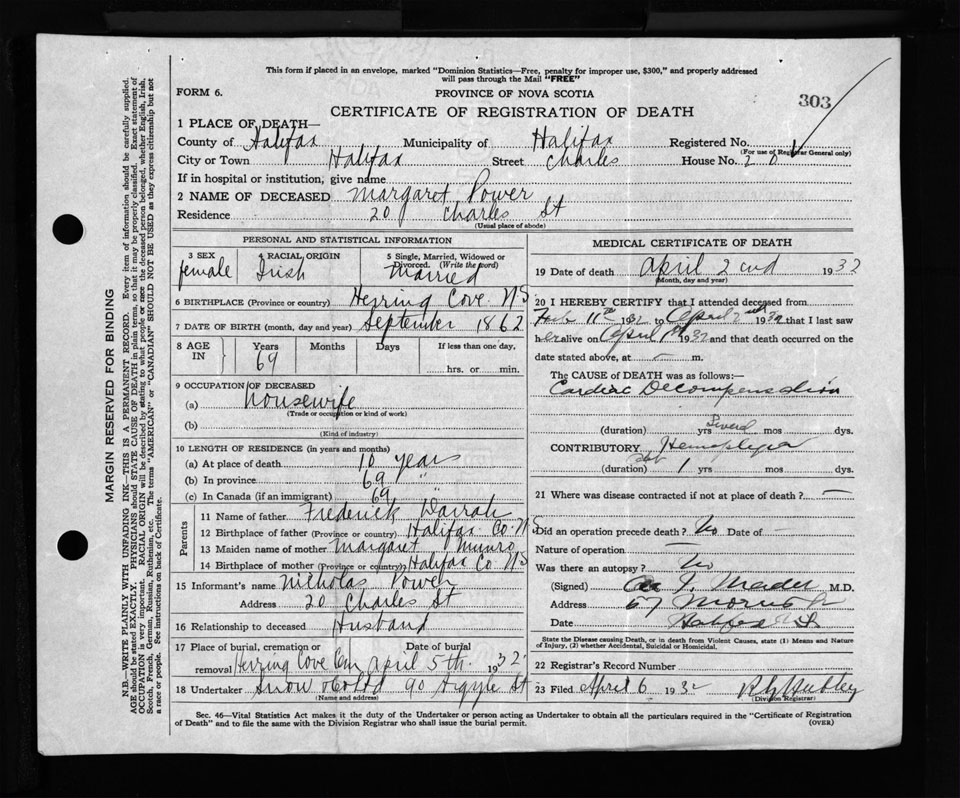 This form if placed in an envelope, marked "Dominion Statistics—Free, penalty for improper use, $300," and properly addressed
will pass through the Mail "FREE"
FORM 6.
PROVINCE OF NOVA SCOTIA
303
CERTIFICATE OF REGISTRATION OF DEATH
1 PLACE OF DEATH—
County of Halifax Municipality of Halifax Registered No.
(For use of Registrar General only)
City or Town Halifax Street Charles House No. 20
If in hospital or institution, give name
2 NAME OF DECEASED Margaret Power
Residence 20 Charles St
(Usual place of abode)
PERSONAL AND STATISTICAL INFORMATION
3 SEX 4 RACIAL ORIGIN 5 Single, Married, Widowed or Divorced. (Write the word)
female Irish Married
6 BIRTHPLACE (Province or country) Herring Cove NS
7 DATE OF BIRTH (month, day and year) September 1862
8 AGE IN Years Months Days If less than one day,
69
hrs. or min.
9 OCCUPATION OF DECEASED
(a) Housewife
(Trade or occupation or kind of work)
(b)
(Kind of industry)
10 LENGTH OF RESIDENCE (in years and months)
(a) At place of death 10 years
(b) In province 69 "
(c) In Canada (if an immigrant) 69
Parents
11 Name of father Frederick Darrah
12 Birthplace of father (Province or country) Halifax Co NS
13 Maiden name of mother Margaret Munro
14 Birthplace of mother (Province or country) Halifax Co NS
15 Informant's name Nicholas Power
Address 20 Charles St
16 Relationship to deceased Husband
17 Place of burial, cremation or removal Herring Cove Cem Date of burial April 5th 1932
18 Undertaker Snow & Co Ltd 90 Argyle St
(Name and address)
MEDICAL CERTIFICATE OF DEATH
19 Date of death April 2nd 1932
(Month, day and year)
20 I HEREBY CERTIFY that I attended deceased from
Feb 11th 1932 to April 2nd 1932 that I last saw
her alive on April 1st 1932 and that death occurred on the
date stated above, at — m.
The CAUSE of DEATH was as follows:—
Cardiac Decompensation
(duration) yrs Several mos dys.
CONTRIBUTORY Hemiplegia
(duration) 1 yrs mos dys.
21 Where was disease contracted if not at place of death? —
Did an operation precede death? No Date of —
Nature of operation —
Was there an autopsy? No
(Signed) Mader M.D.
Address 67 Morris St
Date Halifax N.S.
State the Disease causing Death, or in death from Violent Causes, state (1) Means and Nature
of Injury, (2) whether Accidental, Suicidal or Homicidal.
22 Registrar's Record Number
23 Filed April 6 1932
(Division Registrar)
Sec. 46—Vital Statistics Act makes it the duty of the Undertaker or person acting as Undertaker to obtain all the particulars required in the "Certificate of Registration
of Death" and to file the same with the Division Registrar who shall issue the burial permit.
(OVER)
MARGIN RESERVED FOR BINDING
N.B.—WRITE PLAINLY WITH UNFADING INK—THIS IS A PERMANENT RECORD. Every item of information should be carefully supplied.
AGE should be stated EXACTLY. PHYSICIANS should STATE CAUSE OF DEATH in plain terms, so that it may be properly classified. Exact statement of
OCCUPATION is very important. RACIAL ORIGIN will be described by stating to what people or race the deceased person belonged, whether English, Irish,
Scotch, French, German, Russian, Ruthenian, etc. The terms "AMERICAN" or "CANADIAN" SHOULD NOT BE USED as they express citizenship but not
a race or people. See instructions on back of Certificate.